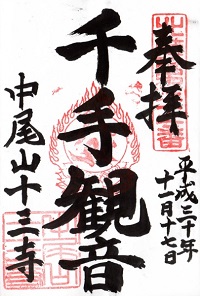 奉拝
平成三十年
十一月十七日
千手観音
中尾山十三寺